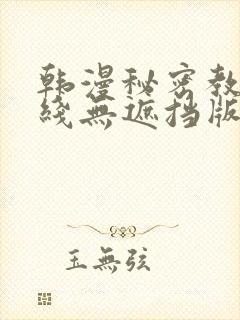 韩漫秘密教
线無遮挡版
玉無弦